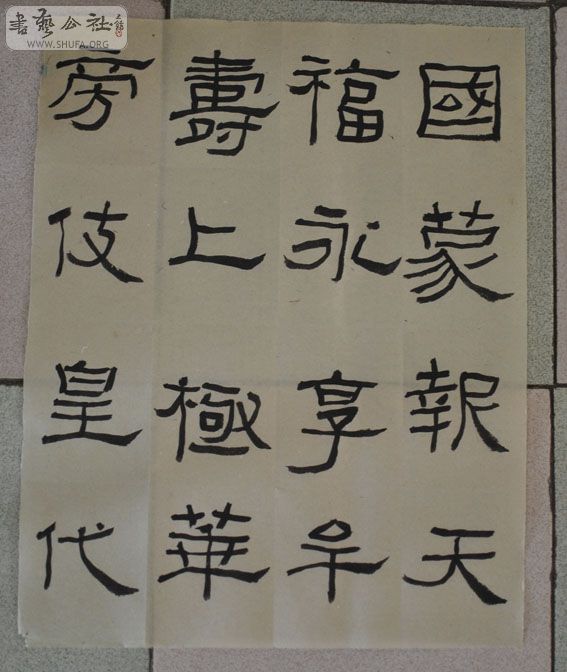 書藝公社
WWW.SHUFA.ORG
國蒙報天
福永享牟
壽上極華
旁伎皇代